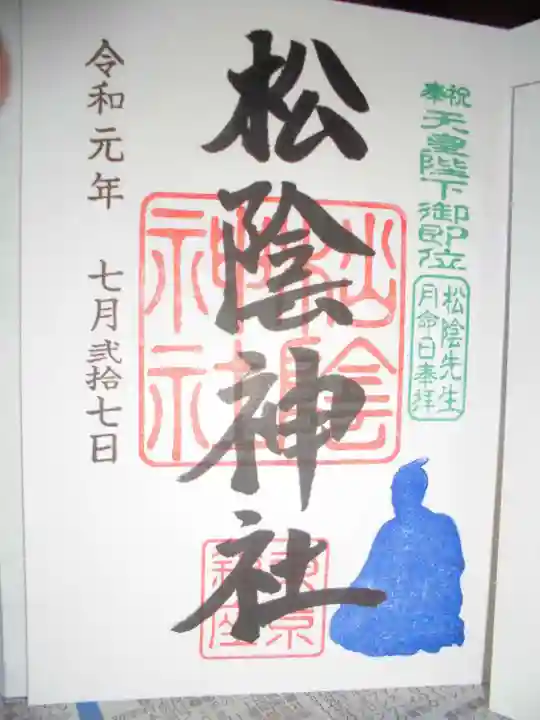 奉祝
天皇陛下御即位
松陰先生
月命日奉拝
松陰神社
令和元年 七月弐拾七日
松陰
神社
東京
鎮座